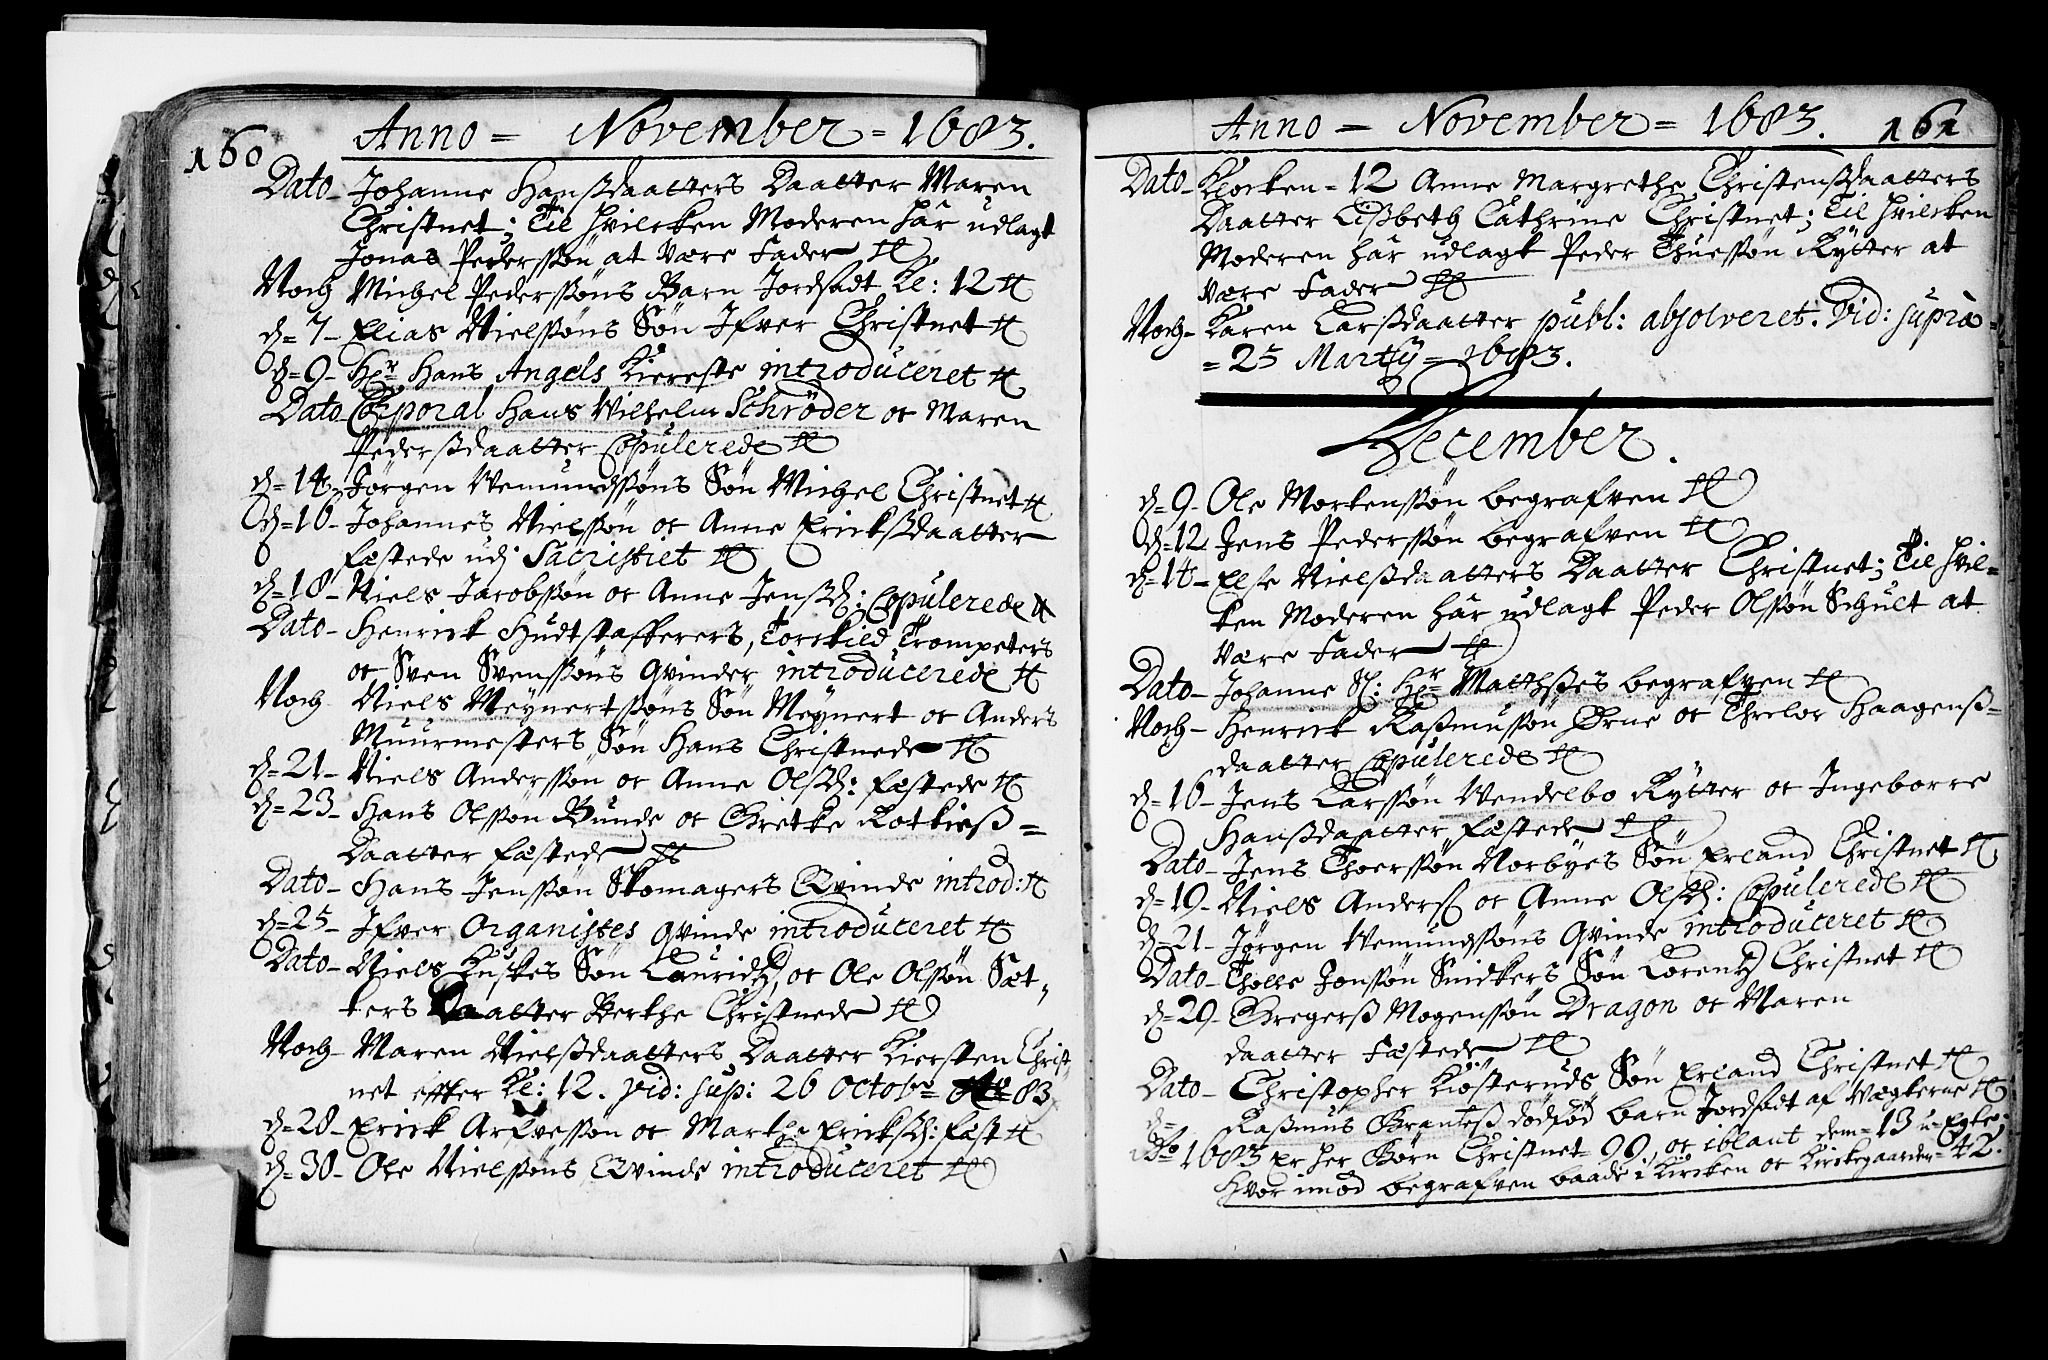 160 Anno = November = 1683.
Dato - Johanne Hansdaatters Daatter Maren
Christnet; Til hvilcken Moderen har udlagt
Jonas Pederssøn at være Fader
Noch Michel Pederssøns Barn Jordfæst Kl: 12
d= 7 - Elias Nielssøns Søn Ifver Christnet
d= 9 - Hr Hans Angels Kiereste introduceret
Dato Corporal Hans Vilhelm Schrøder oc Maren
Pedersdaatter Copulerede
d= 14 - Jørgen Vemundssøns Søn Michel Christnet
d= 16 - Johannes Nielssøn oc Anne Ericksdaatter
fæstede udj Sacristiet
d= 18 - Niels Jacobssøn oc Anne Jensd: Copulerede
Dato - Henrick Hudtstafferers, Torckild Trompeters
oc Sven Svenssøns Qvinder introducerede
Noch Niels Meynertssøns Søn Meynert oc Anders
Muurmesters Søn Hans Christnede
d= 21 - Niels Anderssøn oc Anne Olsd: fæstede
d= 23 - Hans Olssøn Bunde oc Gretke =
Daatter fæstede
Dato - Hans Jenssøn Skomagers Qvinde introd:
d= 25 - Ifver Organistes Qvinde introduceret
Dato - Niels Kuskes Søn Lauridz, oc Ole Olssøn Sæt-
ters Daatter Berthe Christnede
Noch - Maren Nielsdaatters Daatter Kiersten Christ-
net effter Kl: 12. vid: sup: 26 Octobr 83
d= 28 - Erick Arfvessøn oc Marthe Ericksd: fæst
d= 30 - Ole Nielssøns Qvinde introduceret
Anno = November = 1683. 161
Dato - Klocken = 12 Anne Margrethe Christensdaatters
Daatter Lisbeth Cathrine Christnet; Til hvilcken
Moderen har udlagt Peder Thuessøn Rytter at
være Fader
Noch - Karen Larsdaatter publ: absolveret. vid: supra =
= 25 Martij = 1683.
December.
d= 9 - Ole Mortenssøn begrafven
d= 12 Jens Pederssøn begrafven
d= 14 - Else Nielsdaatters Daatter Christnet; Til hvil=
ken Moderen har udlagt Peder Olssøn Schult at
være Fader
Dato - Johanne Sl: Hr Matthsses begrafven
Noch - Henrick Rasmussøn Ørne oc Haagens=
daatter Copulerede
d= 16 - Jens Larssøn Vendelbo Rytter oc Ingeborre
Hansdaatter fæstede
Dato - Jens Thoerssøn Norbyes Søn Erland Christnet
d= 19 - Niels Anders oc Anne Olsd: Copulerede
d= 21 - Jørgen Vemundssøns Qvinde introduceret
Dato - Tholle Jonssøn Snidkers Søn Lorentz Christnet
d= 29 - Gregers Mogenssøn Dragon oc Maren
daatter Fæstede
Dato - Christopher Kiøsteruds Søn Erland Christnet
d= Rasmus Brantes dødfød barn Jordfæst af Vægterne
Ao 1683 er her Børn Christnet = 99, oc iblant dem = 13 u-Egte;
Hvor imod begrafven baade i Kircken oc Kirckegaarden = 42.